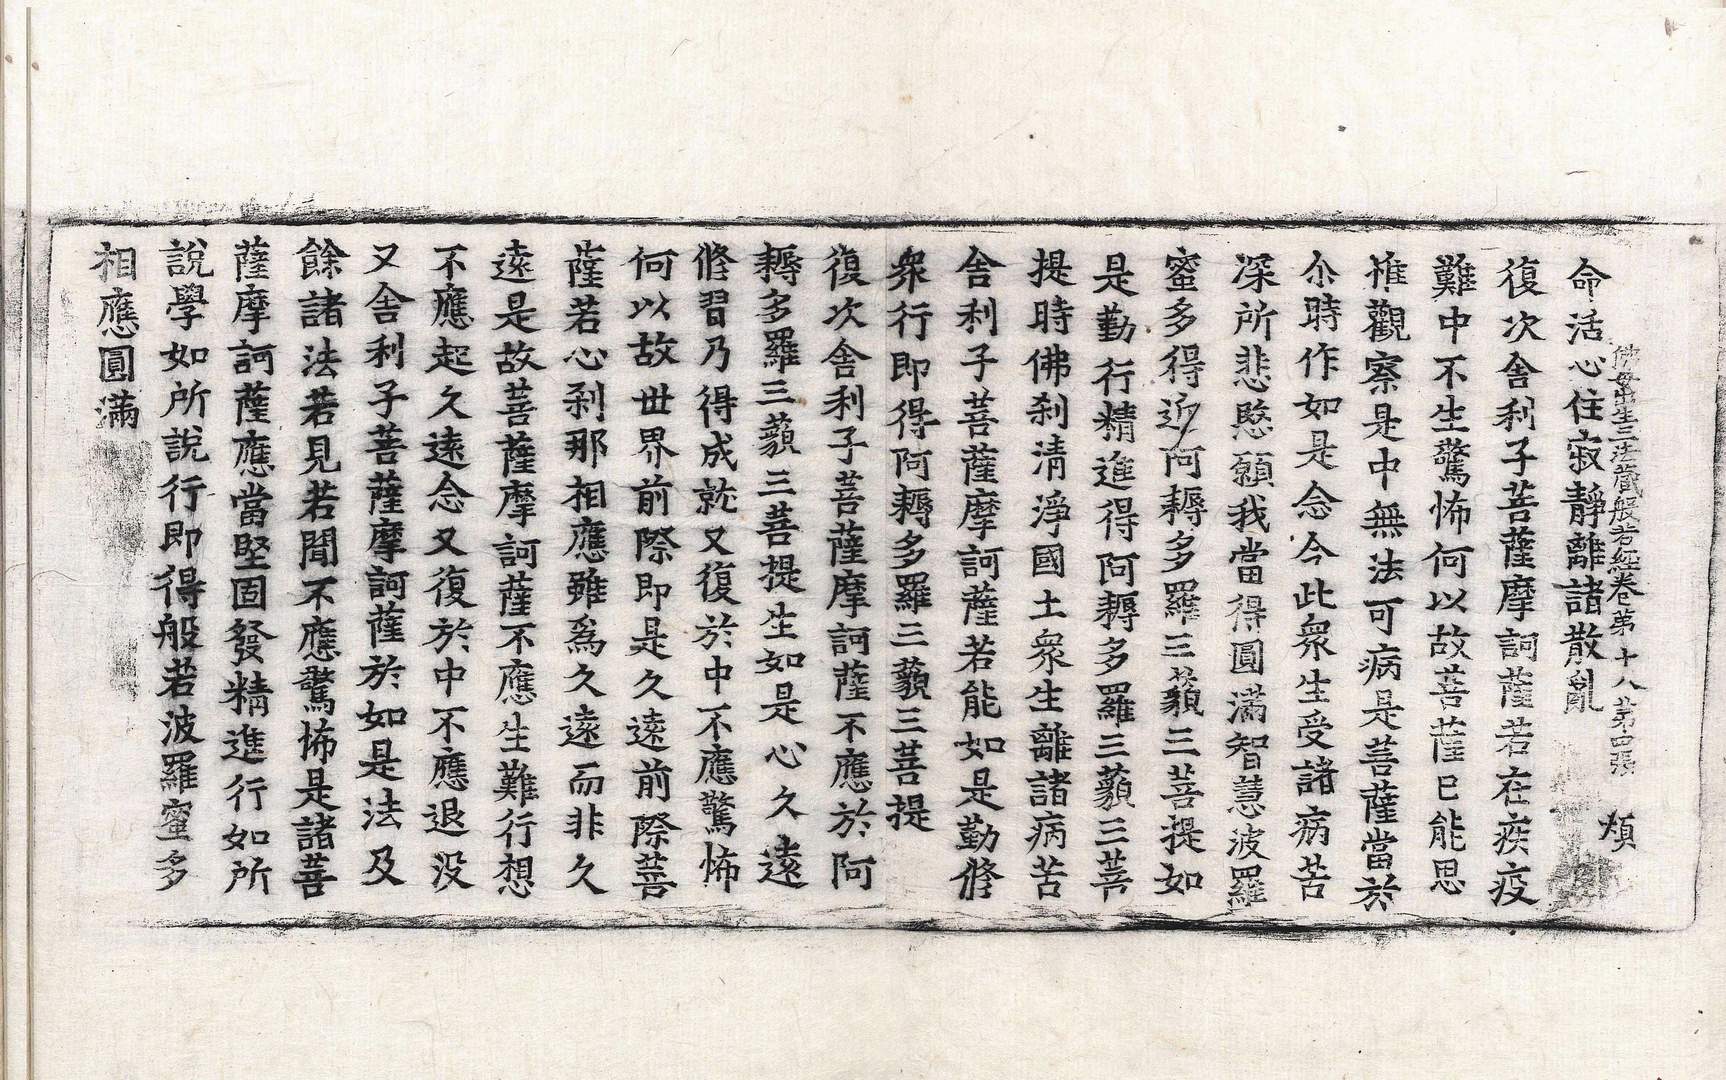 佛母出生三法藏般若經卷第十八第四張 煩
命活心住寂靜離諸散亂
復次舍利子菩薩摩訶薩若在疾疫
難中不生驚怖何以故菩薩已能思
惟觀察是中無法可病是菩薩當於
尒時作如是念今此衆生受諸病苦
深所悲愍願我當得圓滿智慧波羅
蜜多得近阿耨多羅三藐三菩提如
是勤行精進得阿耨多羅三藐三菩
提時佛刹清淨國土衆生離諸病苦
舍利子菩薩摩訶薩若能如是勤修
衆行即得阿耨多羅三藐三菩提
復次舍利子菩薩摩訶薩不應於阿
耨多羅三藐三菩提生如是心久遠
修習乃得成就又復於中不應驚怖
何以故世界前際即是久遠前際菩
薩若心刹那相應雖爲久遠而非久
遠是故菩薩摩訶薩不應生難行想
不應起久遠念又復於中不應退没
又舍利子菩薩摩訶薩於如是法及
餘諸法若見若聞不應驚怖是諸菩
薩摩訶薩應當堅固發精進行如所
說學如所說行即得般若波羅蜜多
相應圓滿